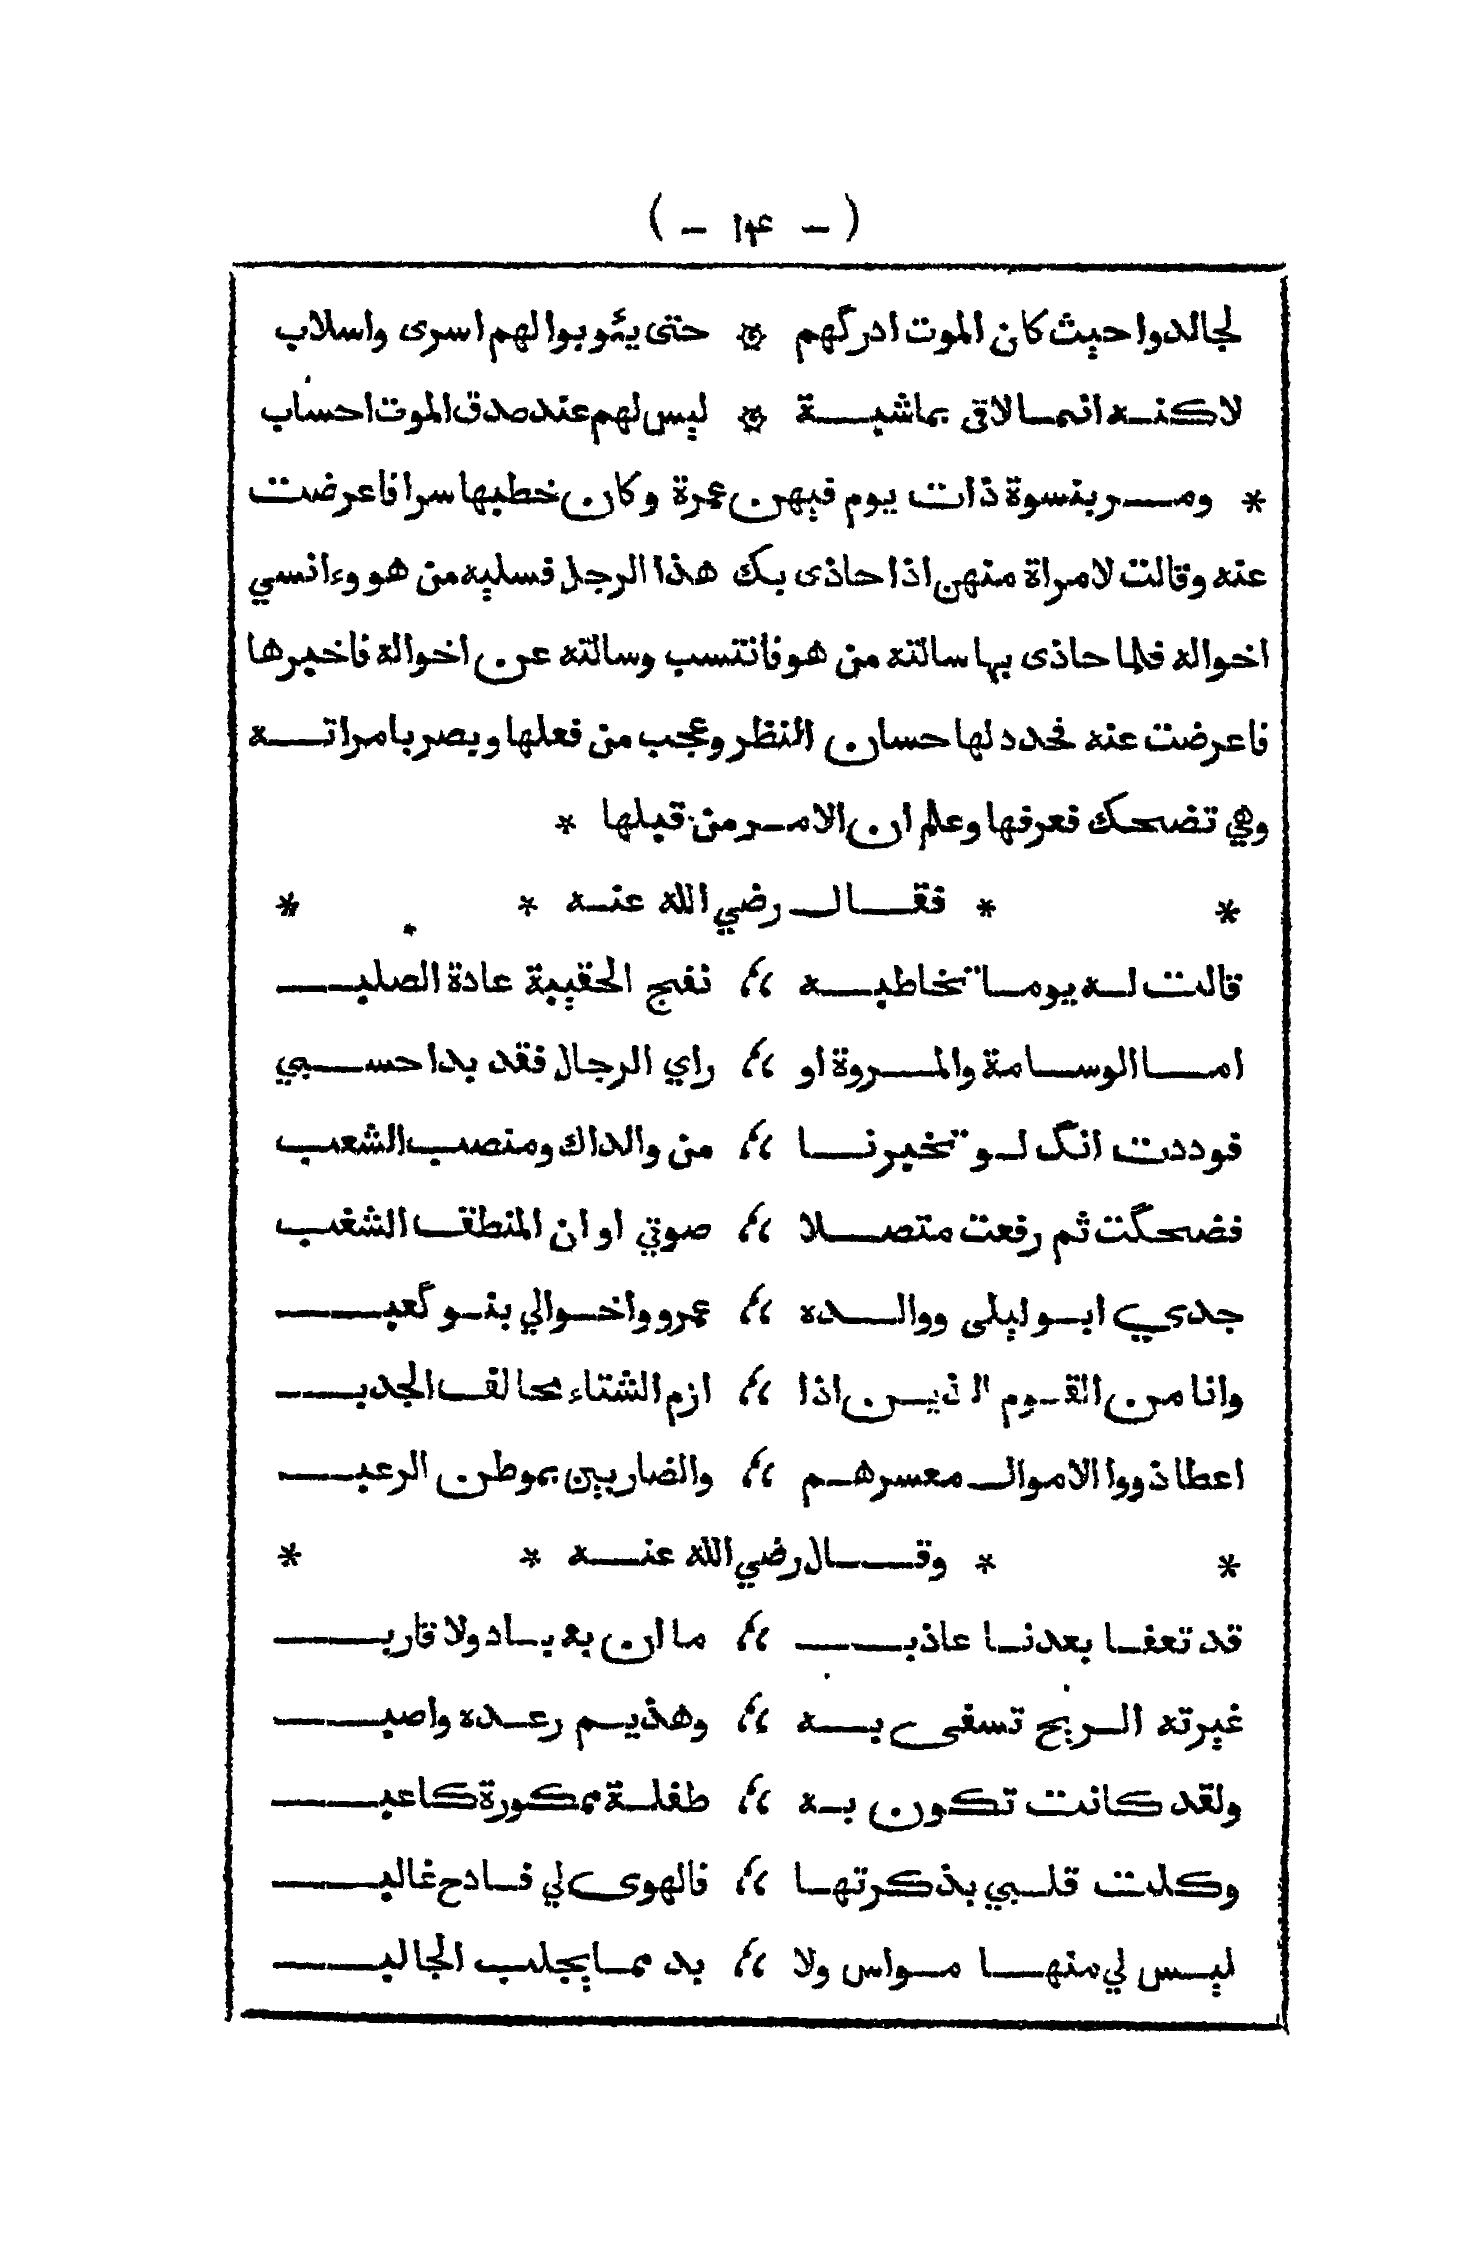 ( - ١۴ - )
لجالدوا حيث كان الموت ادركهم * حتى يئوبوا لهم اسرى واسلاب
لاكنه انما لاقى بماشية * ليس لهم عند صدق الموت احساب
* ومر بنسوة ذات يوم فيهن عمرة وكان خطبها سرا فاعرضت
عنه وقالت لامراة منهن اذا حاذى بك هذا الرجل فسليه من هو وءانسي
اخواله فلما حاذى بها سالته من هو فانتسب وسالته عن اخواله فاخبرها
فاعرضت عنه فحدد لها حسان النظر وعجب من فعلها وبصر بامراته
وهي تضحك فعرفها وعلم ان الامر من قبلها *
* * فقال رضي الله عنه * *
قالت له يوما تخاطبه ،، نفج الحقيبة عادة الصلب
اما الوسامة والمروة او ،، راي الرجال فقد بدا حسبي
فوددت انك لو تخبرنا ،، من والداك ومنصب الشعب
فضحكت ثم رفعت متصلا ،، صوتي اوان المنطق الشغب
جدي ابو ليلى ووالده ،، عمرو واخوالي بنو كعب
وانا من القوم الذين اذا ،، ازم الشتاء محالف الجدب
اعطا ذووا الاموال معسرهم ،، والضاربين بموطن الرعب
* * وقال رضي الله عنه * *
قد تعفا بعدنا عاذب ،، ما ان به باد ولا قارب
غيرته الريح تسفى به ،، وهذيم رعده واصب
ولقد كانت تكون به ،، طفلة ممكورة كاعب
وكلت قلبي بذكرتها ،، فالهوى لي فادح غالب
ليس لي منها مواس ولا ،، بد مما يجلب الجالب